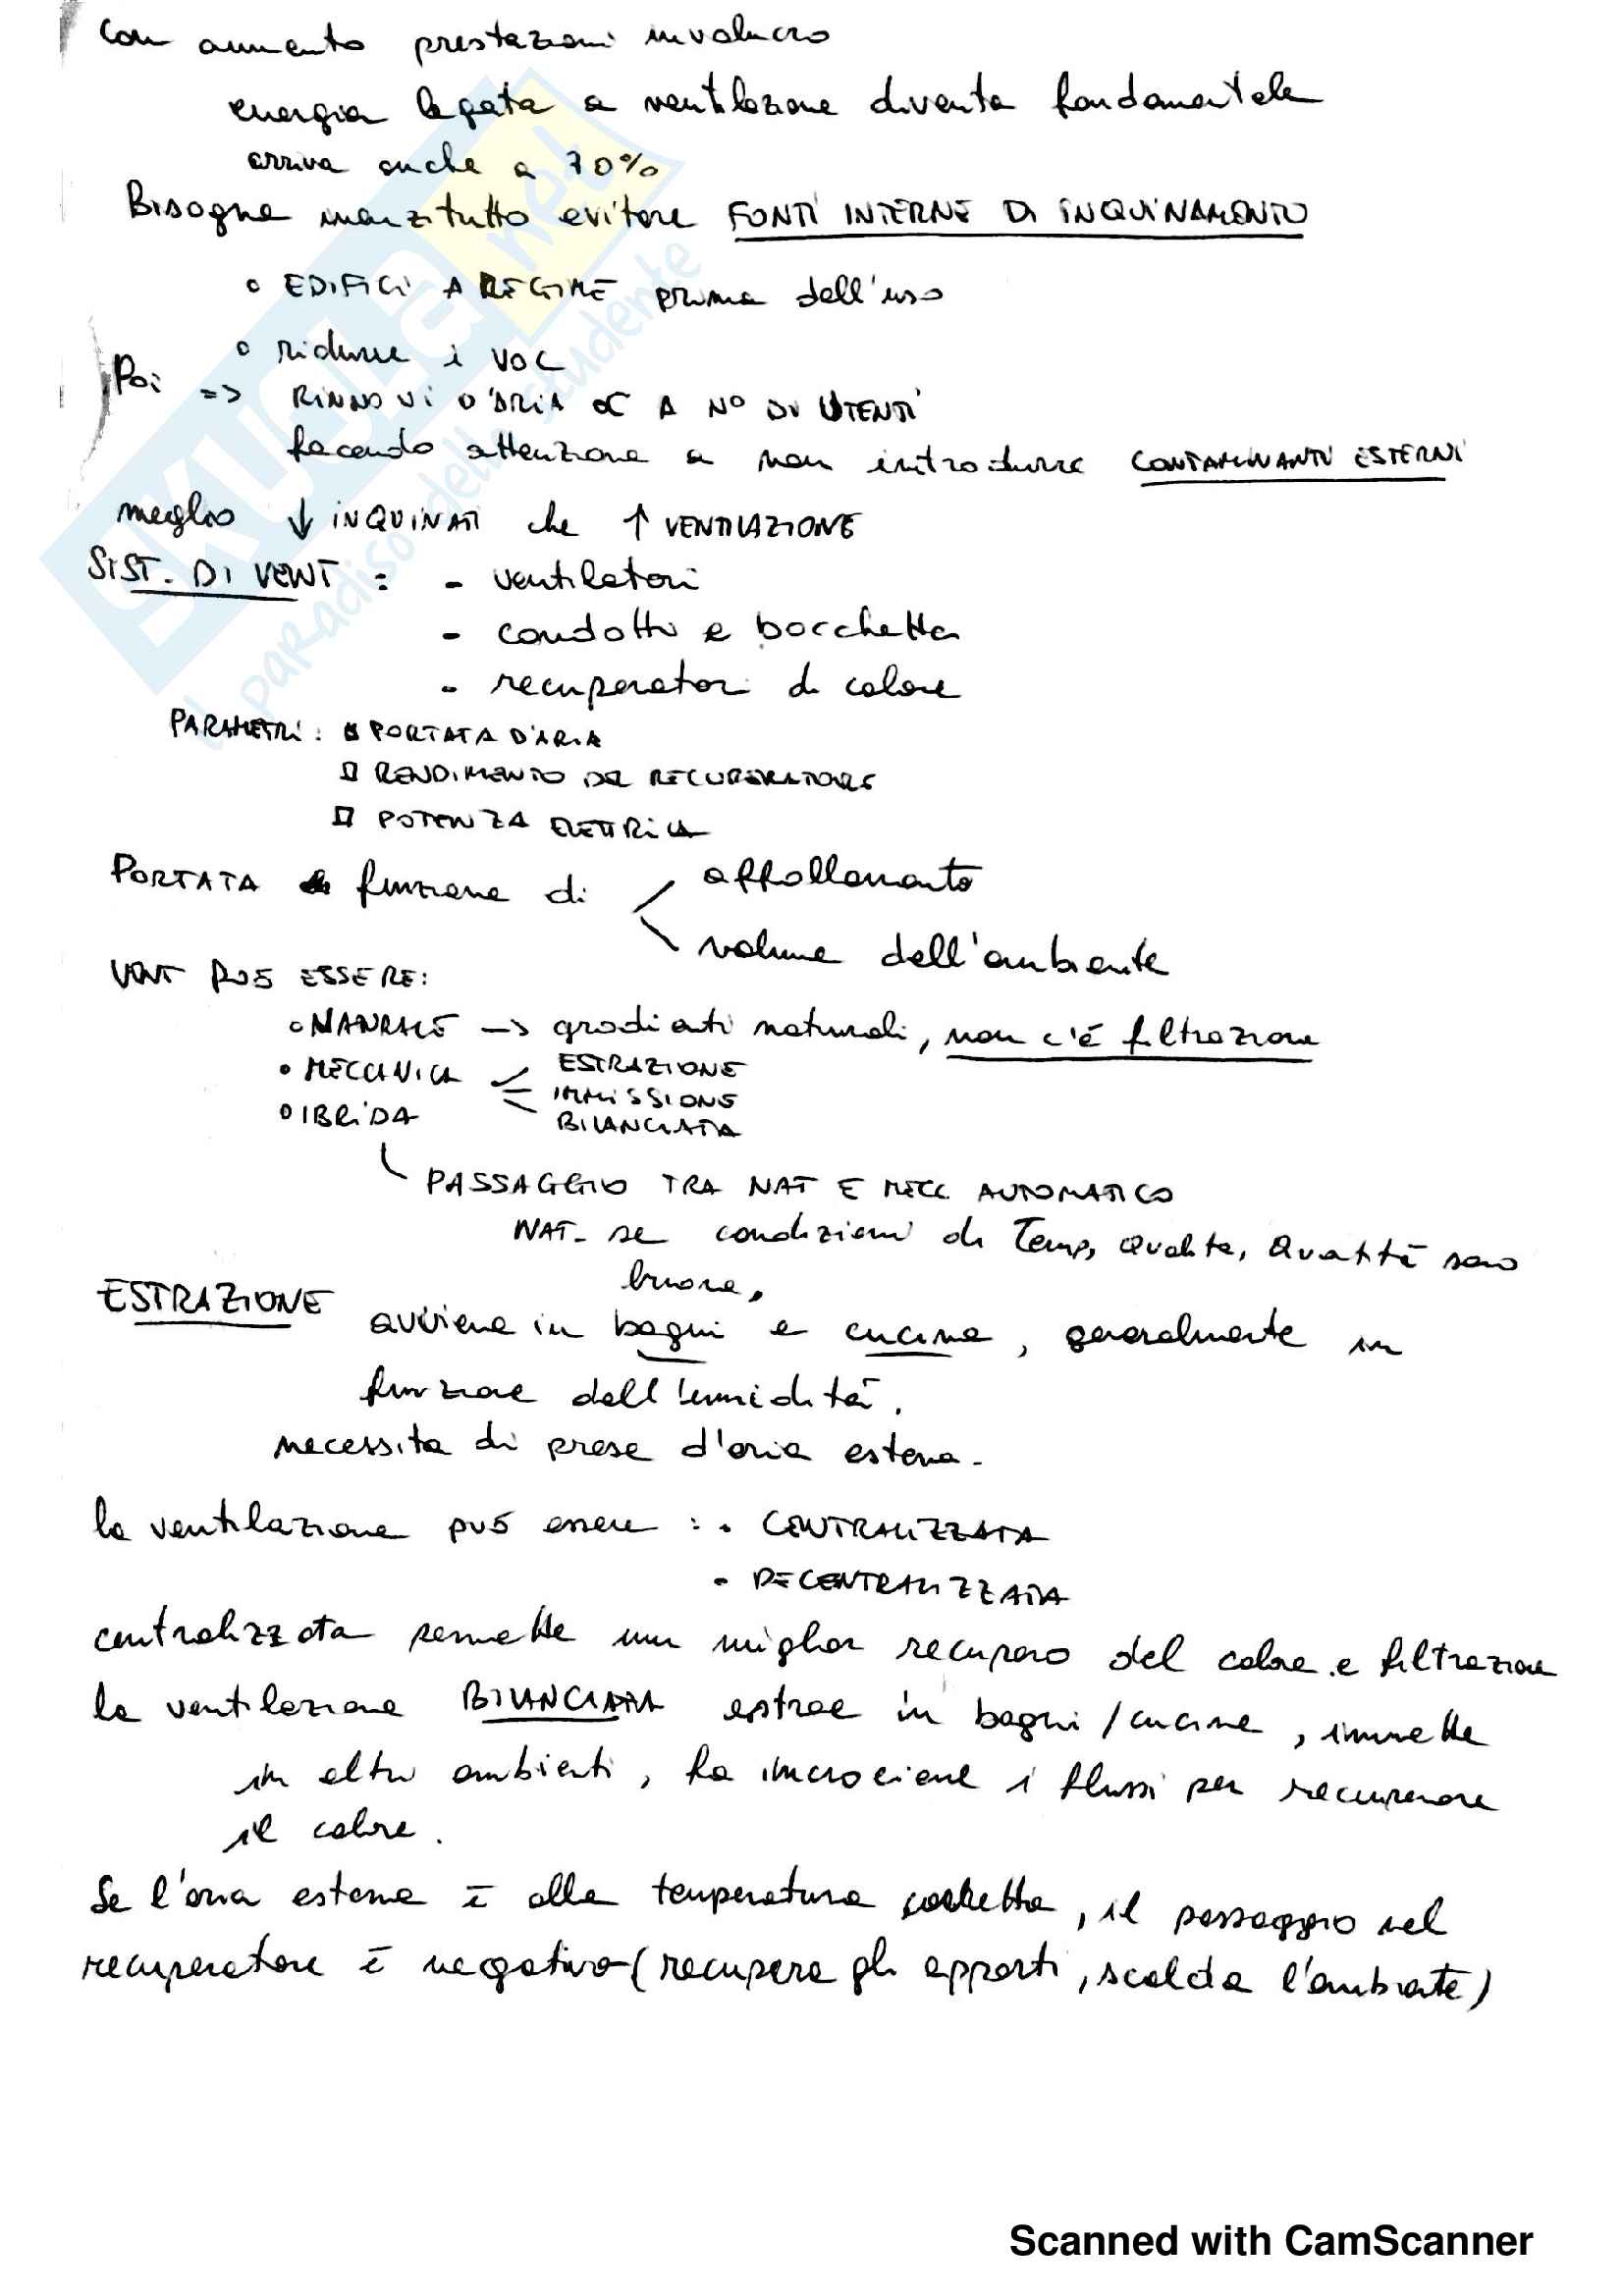 Con aumento prestazioni involucro
energia legata a ventilazione diventa fondamentale
arriva anche a 70%
Bisogna innanzitutto evitare FONTI INTERNE DI INQUINAMENTO
o EDIFICI A REGIME prima dell'uso
o ridurre i VOC
Poi => RINNOVI D'ARIA ∝ A N° DI UTENTI
facendo attenzione a non introdurre CONTAMINANTI ESTERNI
meglio ↓ INQUINATI che ↑ VENTILAZIONE
SIST. DI VENT : - ventilatori
- condotti e bocchetta
- recuperatori di calore
PARAMETRI: PORTATA D'ARIA
RENDIMENTO DEL RECUPERATORE
POTENZA ELETTRICA
PORTATA funzione di affollamento
volume dell'ambiente
VENT PUÒ ESSERE:
o MANUALE -> gradienti naturali, non c'è filtrazione
• MECCANICA ESTRAZIONE
IMMISSIONE
o IBRIDA BILANCIATA
PASSAGGIO TRA NAT E MECC AUTOMATICO
NAT. se condizioni di Temp, Qualità, Quantità sono
buone.
ESTRAZIONE avviene in bagni e cucina, generalmente in
funzione dell'umidità.
necessita di prese d'aria esterna.
la ventilazione può essere : • CENTRALIZZATA
• DECENTRALIZZATA
centralizzata permette un miglior recupero del calore e filtrazione
la ventilazione BILANCIATA estrae in bagni/cucine, immette
in altri ambienti, fa incrociare i flussi per recuperare
il calore.
Se l'aria esterna è alla temperatura corretta, il passaggio nel
recuperatore è negativo (recupera gli apporti, scalda l'ambiente)
SKUOLA.net
il paradiso dello studente
Scanned with CamScanner